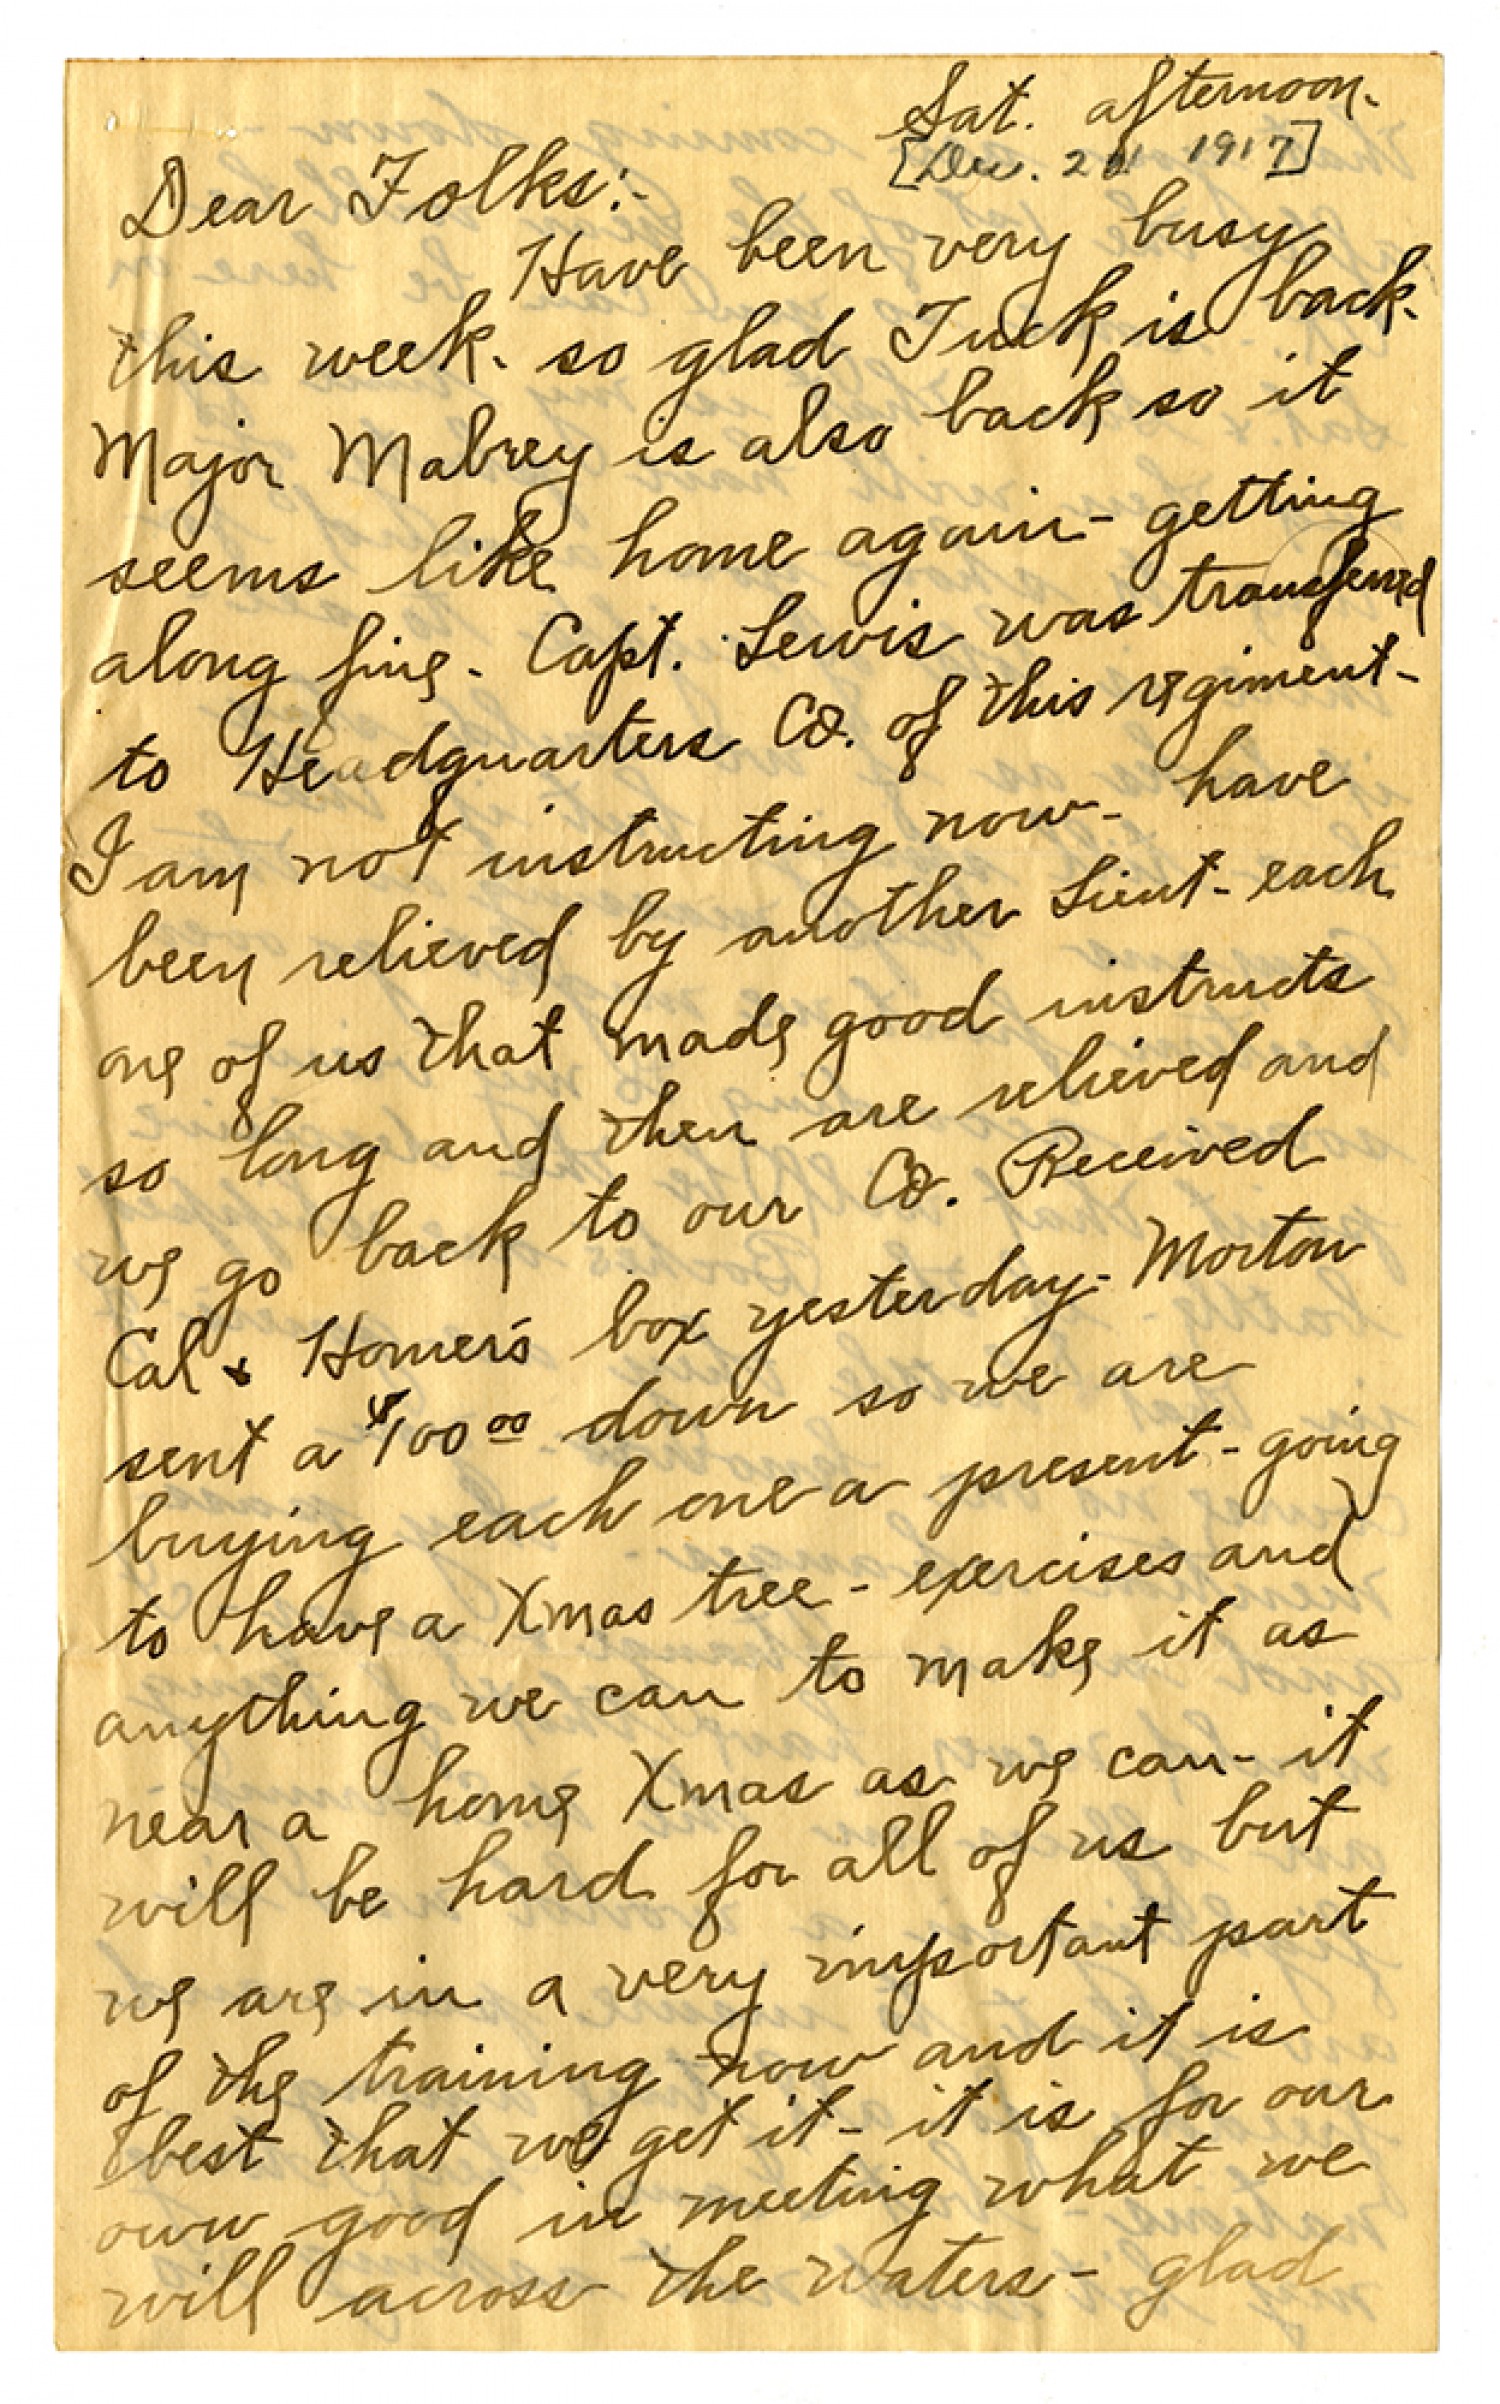 Sat. afternoon.
[Dec. 1917]
Dear Folks:-
Have been very busy
this week. so glad Tuck is back.
Major Mabrey is also back so it
seems like home again - getting
along fine. Capt. Lewis was transferred
to Headquarters Co. of this regiment -
I am not instructing now - have
been relieved by another Lieut - each
one of us that made good instructs
so long and then are relieved and
we go back to our Co. Received
Cal & Homer's box yesterday - Morton
sent a $100 00 down so we are
buying each one a present - going
to have a Xmas tree - exercises and
anything we can to make it as
near a home Xmas as we can - it
will be hard for all of us but
we are in a very important part
of the training now and it is
best that we get it - it is for our
own good in meeting what we
will across the waters - glad